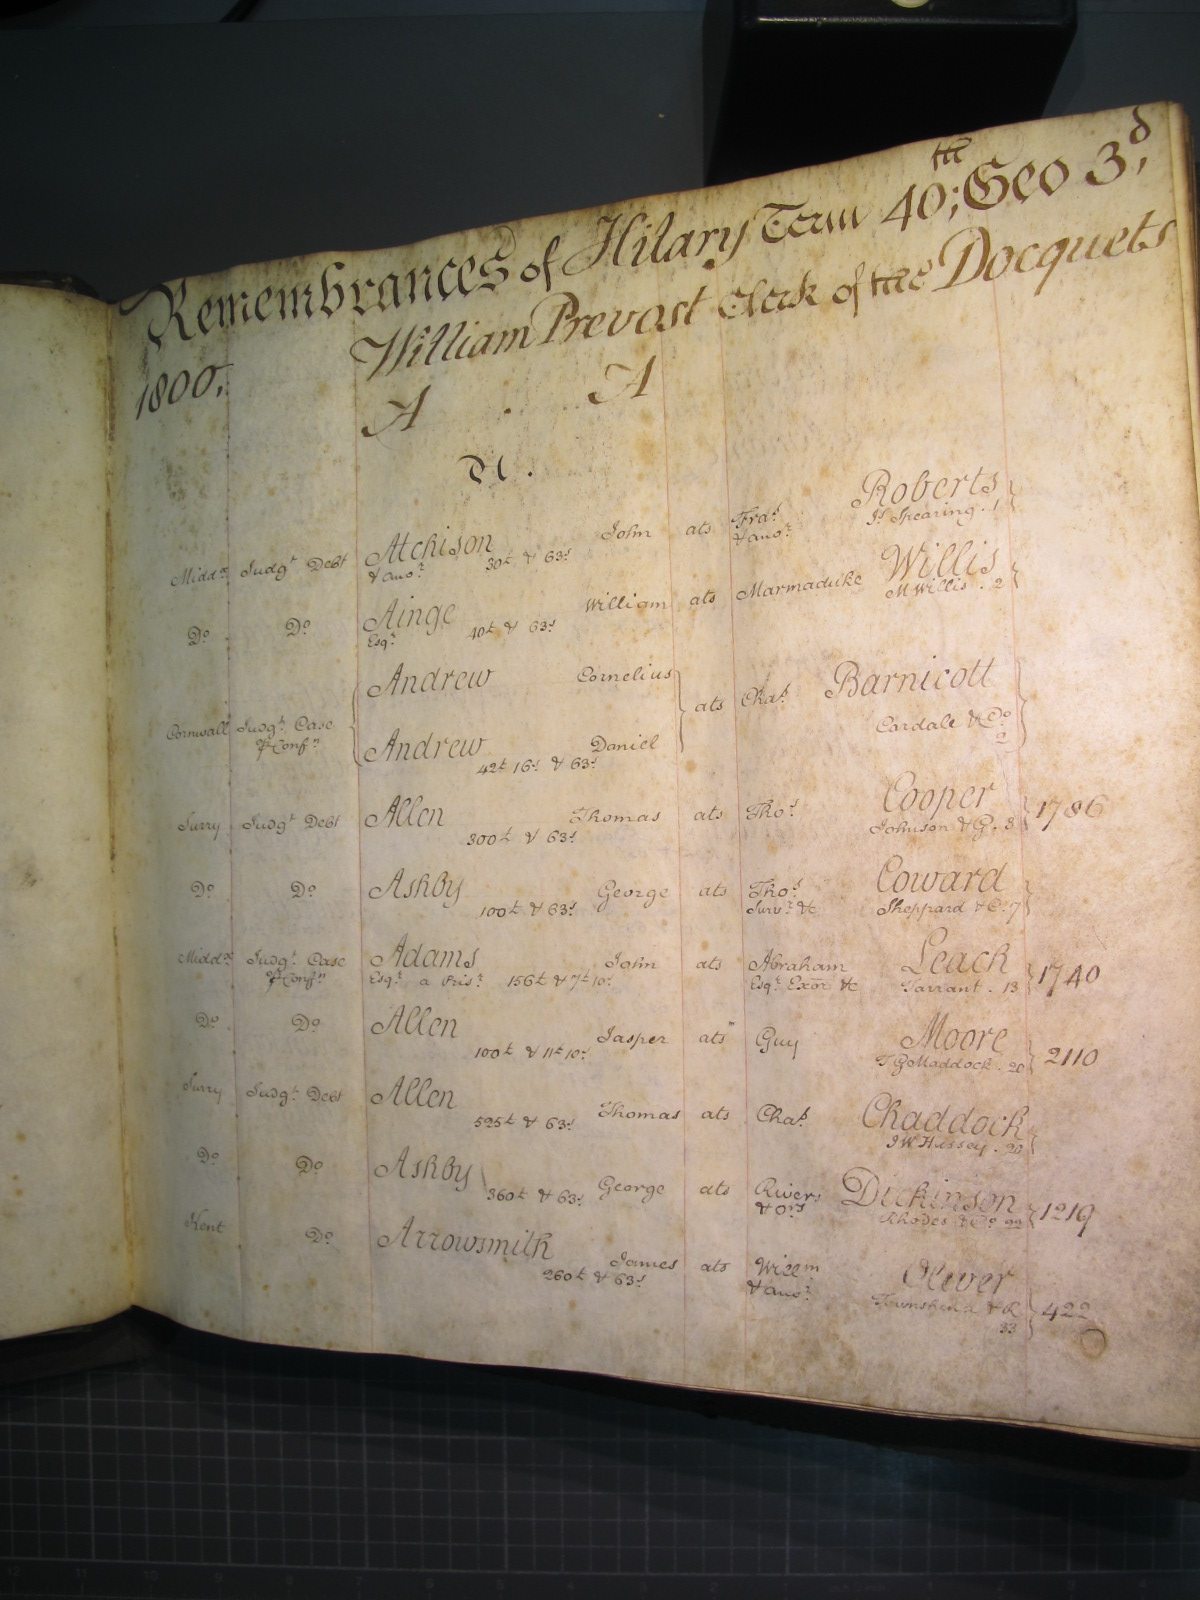 Remembrances of Hilary Term 40;th Geo 3,d
1800, William Prevost Clerk of the Docquets
A A
Midd.x Judg.t Debt Atchison John ats Fra.s Roberts
& ano.r 30£ & 63.s & ano.r J.s Spearing . 1
D.o D.o Ainge William ats Marmaduke Willis
Esq.r 40£ & 63.s M Willis . 2
Andrew Cornelius
Cornwall Judg.t Case ats Cha.s Barnicott
P Conf.n Cardale & C.o
Andrew Daniel 2
42£ 16.s & 63.s
Surry Judg.t Debt Allen Thomas ats Tho.s Cooper 1786
300£ & 63.s Johnson & G. 3
D.o D.o Ashby George ats Tho.s Coward
100£ & 63.s Surv.r &c Sheppard & C.o 7
Midd.x Judg.t Case Adams John ats Abraham Leach 1740
P Conf.n Esq.r a Pris.r 156£ & 7£ 10.s Esq.r Exor &c Tarrant . 13
D.o D.o Allen Jasper ats Guy Moore 2110
100£ & 11£ 10.s T G Maddock . 20
Surry Judg.t Debt Allen Thomas ats Cha.s Chaddock
525£ & 63.s J W Hussey . 20
D.o D.o Ashby George ats Rivers Dickinson 1219
360£ & 63.s & o.rs Rhodes & C.o 22
Kent D.o Arrowsmith James ats Willm Oliver 422
260£ & 63.s & ano.r Townshend & R
33